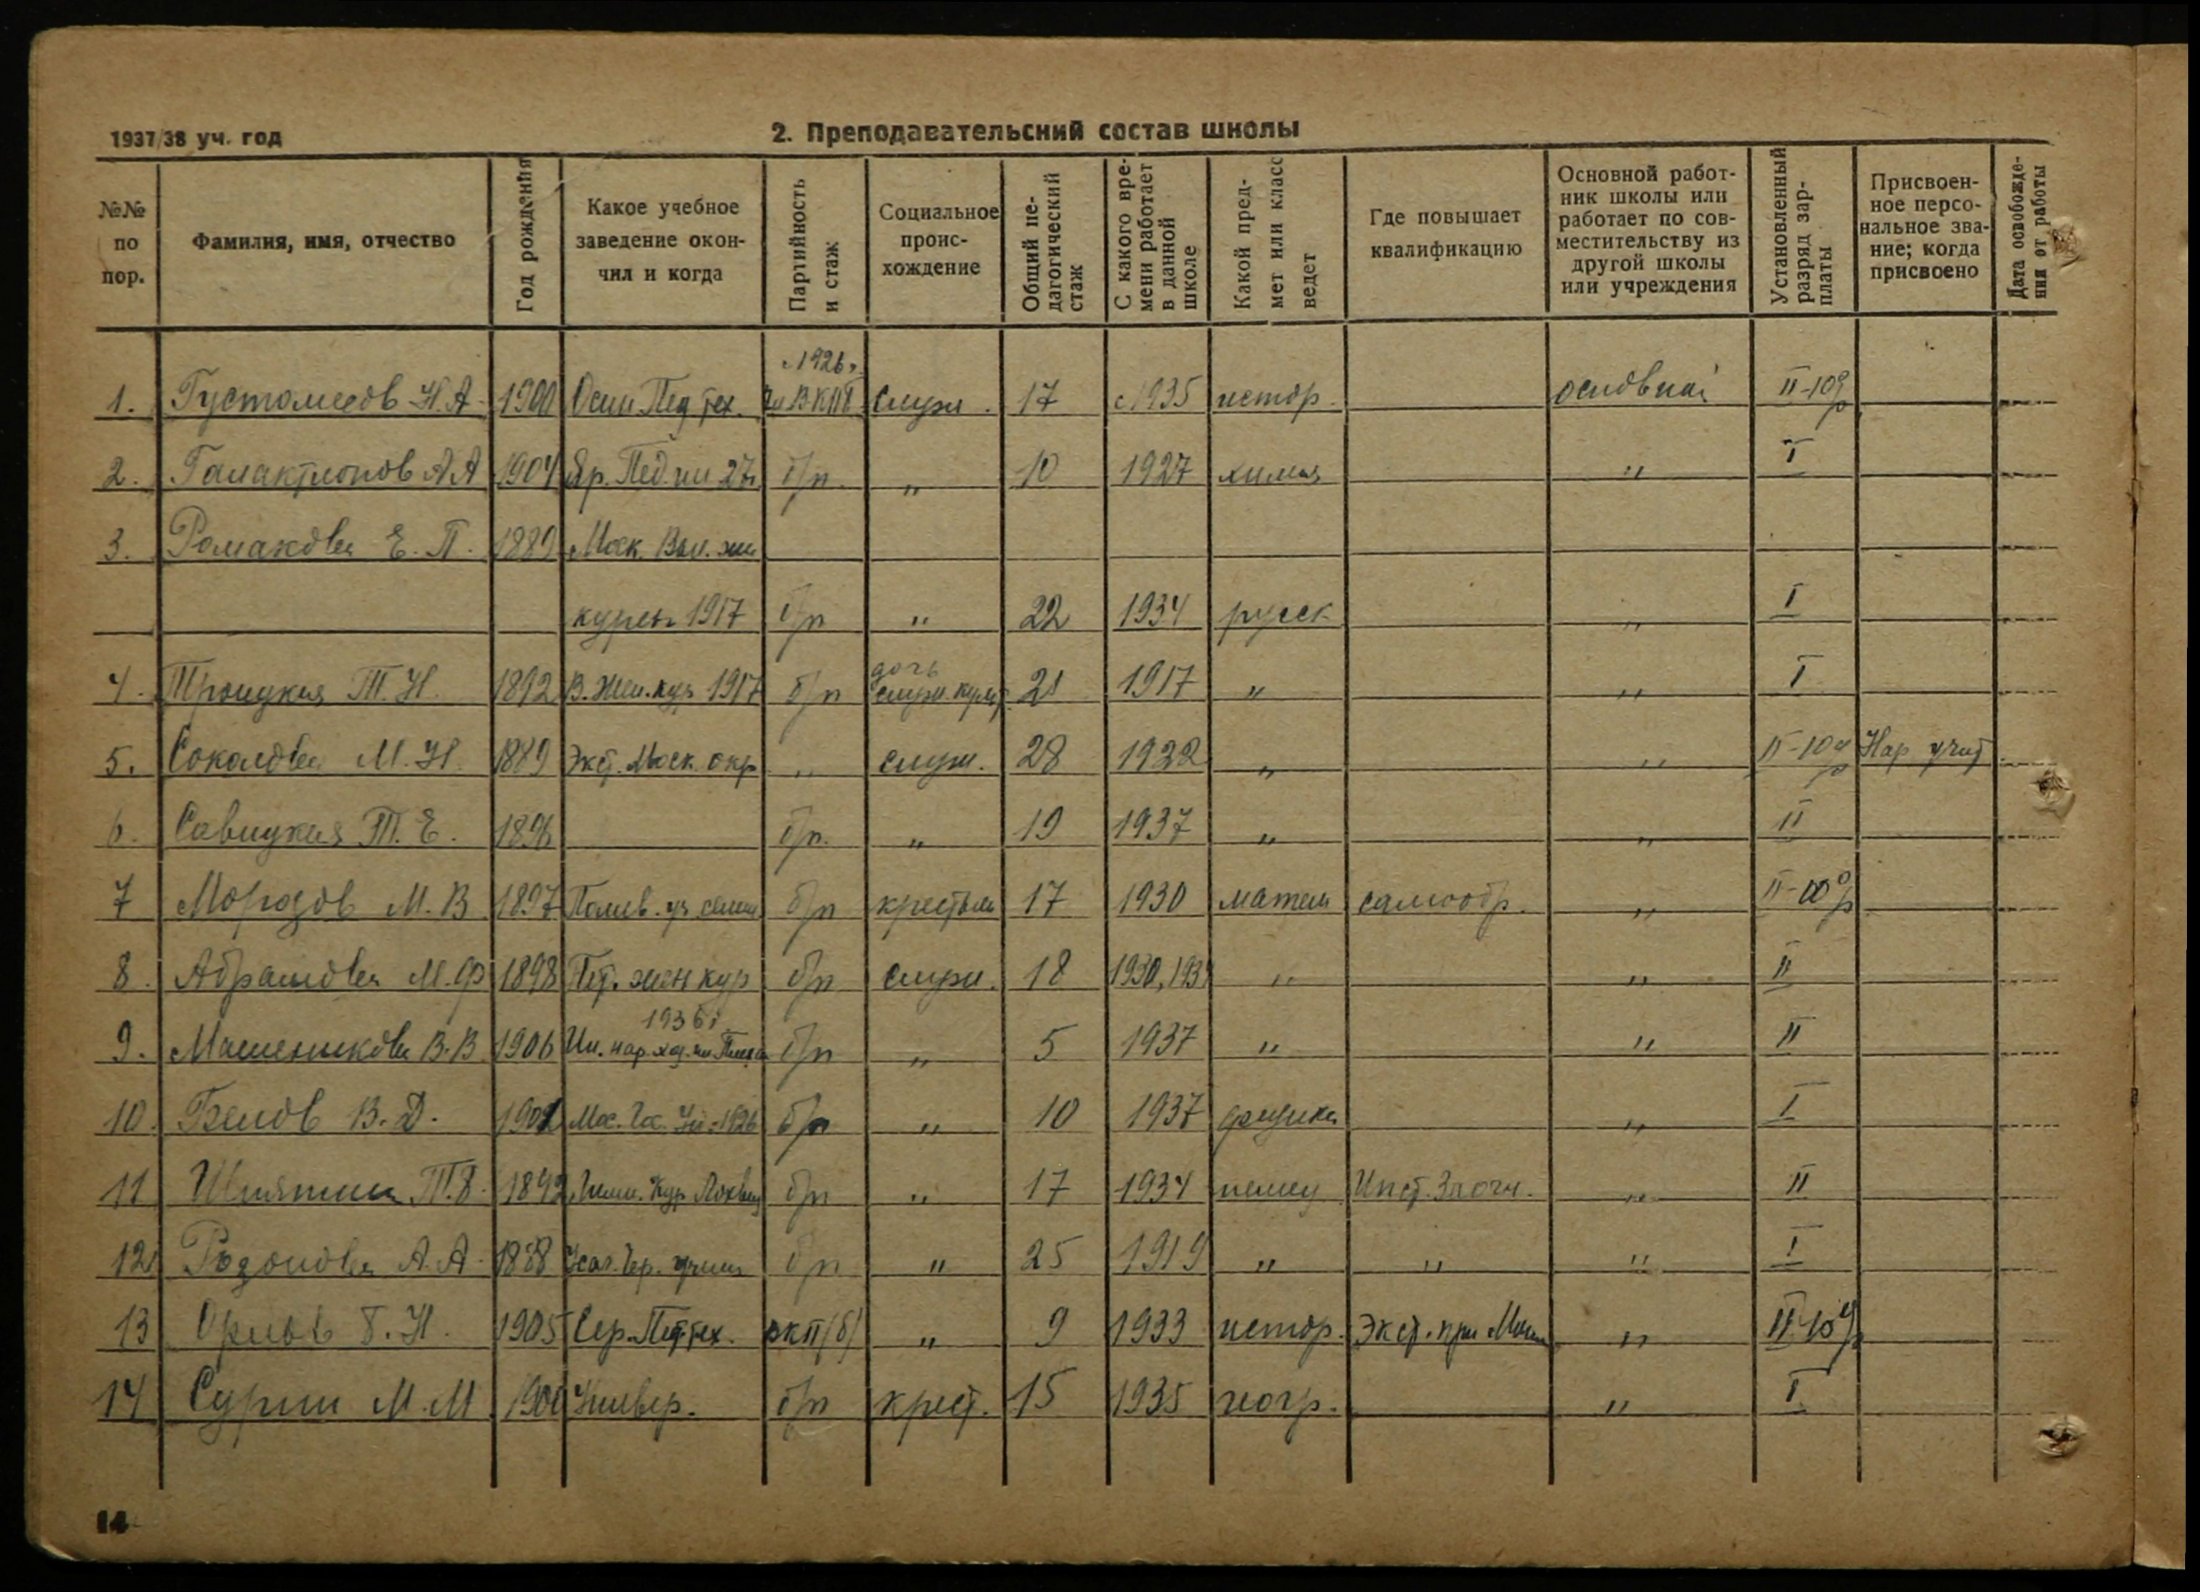 1937/38 уч. год
2. Преподавательский состав школы
№№ по пор.
Фамилия, имя, отчество
Год рождения
Какое учебное заведение окончил и когда
Партийность и стаж
Социальное происхождение
Общий педагогический стаж
С какого времени работает в данной школе
Какой предмет или класс ведет
Где повышает квалификацию
Основной работник школы или работает по совместительству из другой школы или учреждения
Установленный разряд зарплаты
Присвоенное персональное звание; когда присвоено
Дата освобождения от работы
с 1926 г.
1. Густомесов Н. А. 1900 Пед. тех. ВКПб служ. 17 с 1935 истор. основной II-10%
2. Галактионов А А 1904 Яр. Пед. ин 27г. б/п. " 10 1927 химия " I
3. Романова Е. П. 1889 Моск. Выс. жен
курсы 1917 б/п " 22 1934 русск " I
дочь
4. Троицкая Т. Н. 1892 В. Жен. кур 1917 б/п служ. культ 21 1917 " " I
5. Соколова М. Н. 1889 Экст. Моск. окр " служ. 28 1922 " " II-10% Нар учит
6. Савицкая Т. Е. 1896 б/п. " 19 1937 " " II
7 Морозов М. В 1897 уч. семин б/п крестьян 17 1930 матем самообр. " II-10%
8. Абрамова М. Ф 1898 жен кур б/п служ. 18 1930, " " II
1936 г
9. В. В 1906 Ин. нар. хоз. им Плехан б/п " 5 1937 " " II
10. Белов В. Д. Мос. Гос. Ун. 1926 б/п " 10 1937 физика " I
11 Т. 1892 Кур. б/п " 17 1934 немец Инст. Заочн. " II
12 А. А. 1888 б/п " 25 1919 " " " I
13 Орлов Н. 1905 Сер. Пед. тех. вкп(б) " 9 1933 истор. Экст. при " II-10%
14 Сурин М. М 1900 Универ. б/п крест. 15 1935 геогр. " I
14